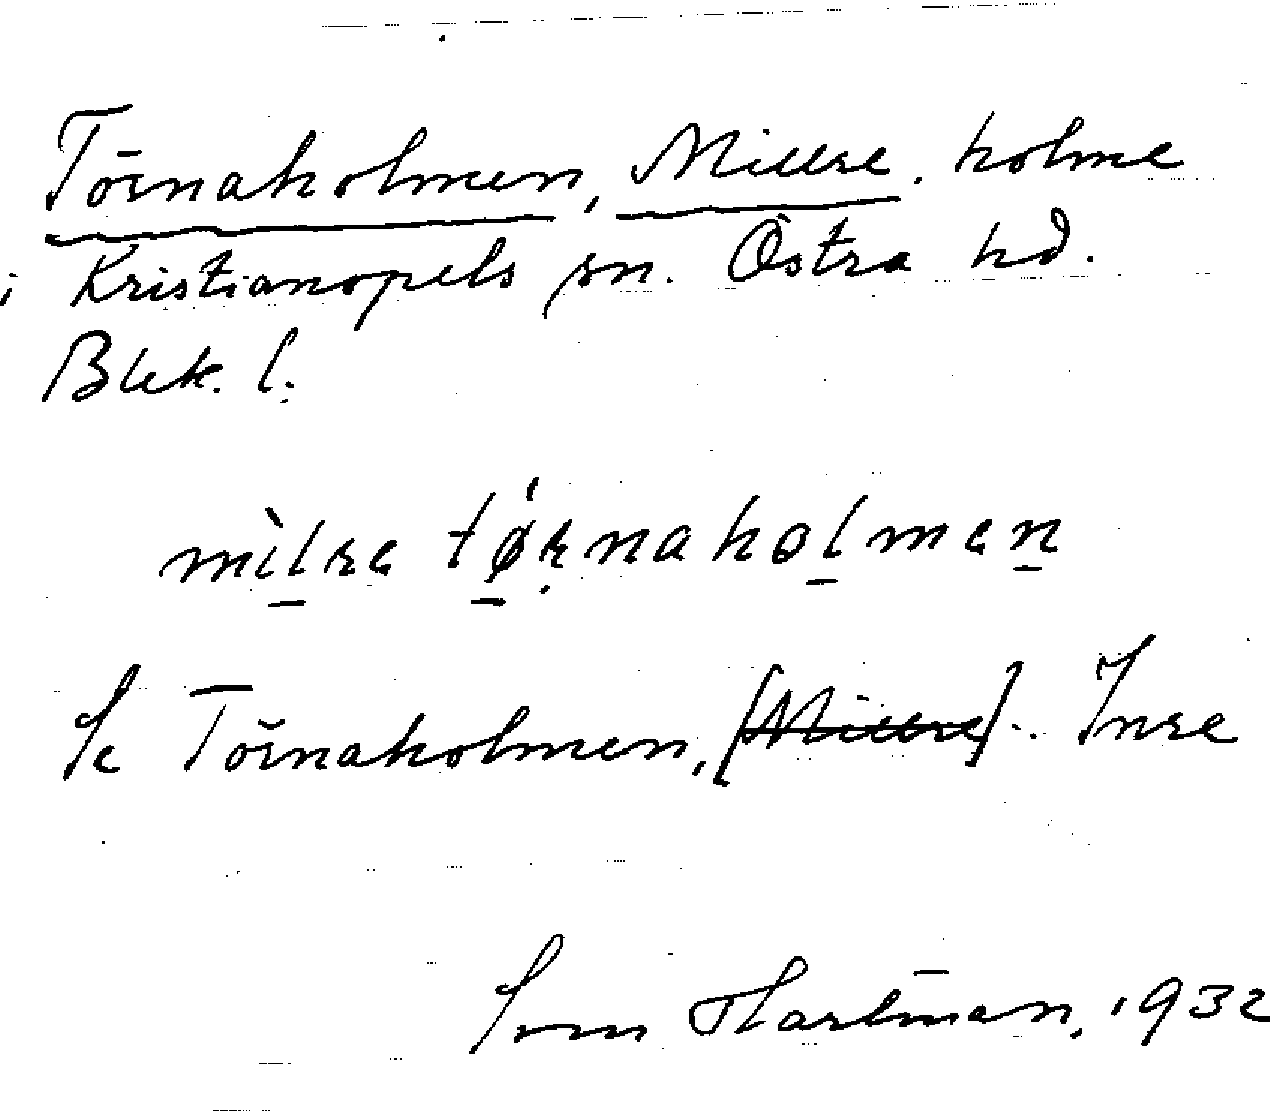 Törnaholmen, Millre. holme
i Kristianopels sn. Östra hd.
Blek. l.
mìlre tǿrnaholmen
Se Törnaholmen, [Millre]. Inre
Sven Hartman, 1932